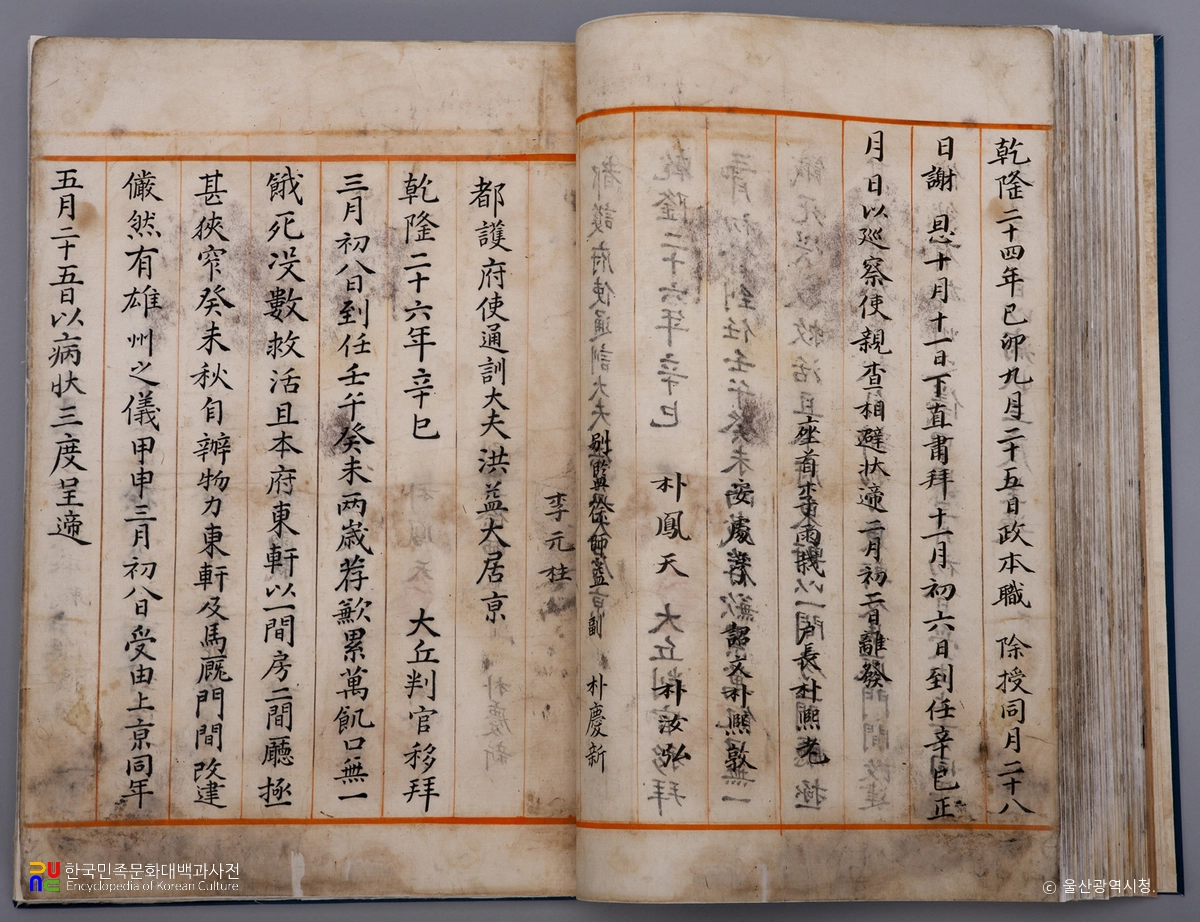 乾隆二十四年己卯九月二十五日政本職 除授同月二十八
日謝 恩十月十一日下直肅拜十一月初六日到任辛巳正
月日以巡察使親查相避狀啇二月初二日離發
座首李雨
戶長朴熙老
安處
詔文朴熙敦
朴鳳天
朴汝弘
別監
朴慶新
李元柱
都護府使通訓大夫洪益大居京
乾隆二十六年辛巳 大丘判官移拜
三月初八日到任壬午癸未兩歲荐歉累萬飢口無一
餓死没數救活且本府東軒以一間房二間廳極
甚狹窄癸未秋自辦物力東軒及馬厩門間改建
儼然有雄州之儀甲申三月初八日受由上京同年
五月二十五日以病狀三度呈啇
한국민족문화대백과사전
Encyclopedia of Korean Culture
© 울산광역시청.